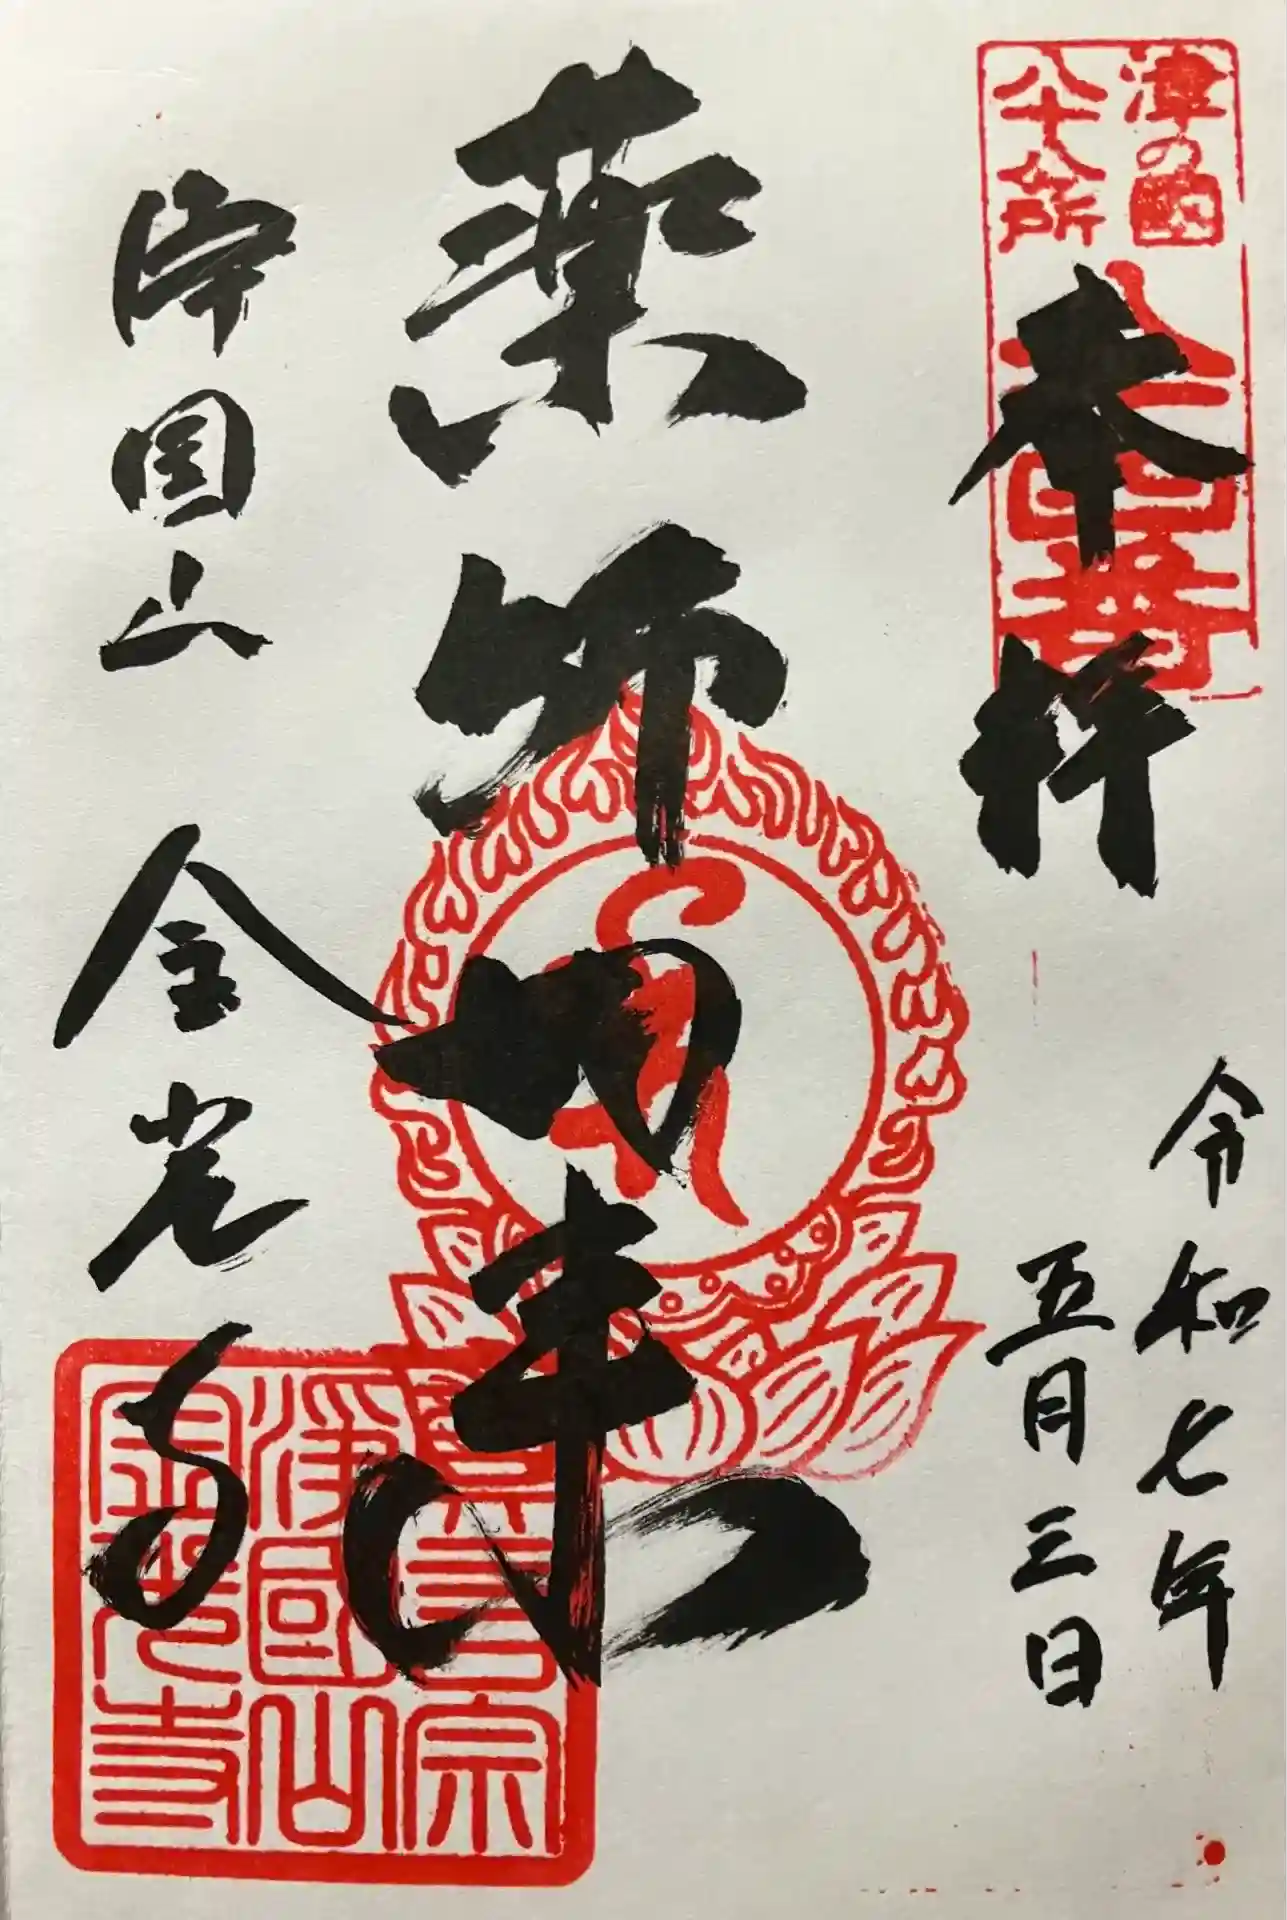 津の国
八十八所
奉拝
令和七年
五月三日
薬師如来
浄国山 金光寺
真言宗
淨國山
金光寺